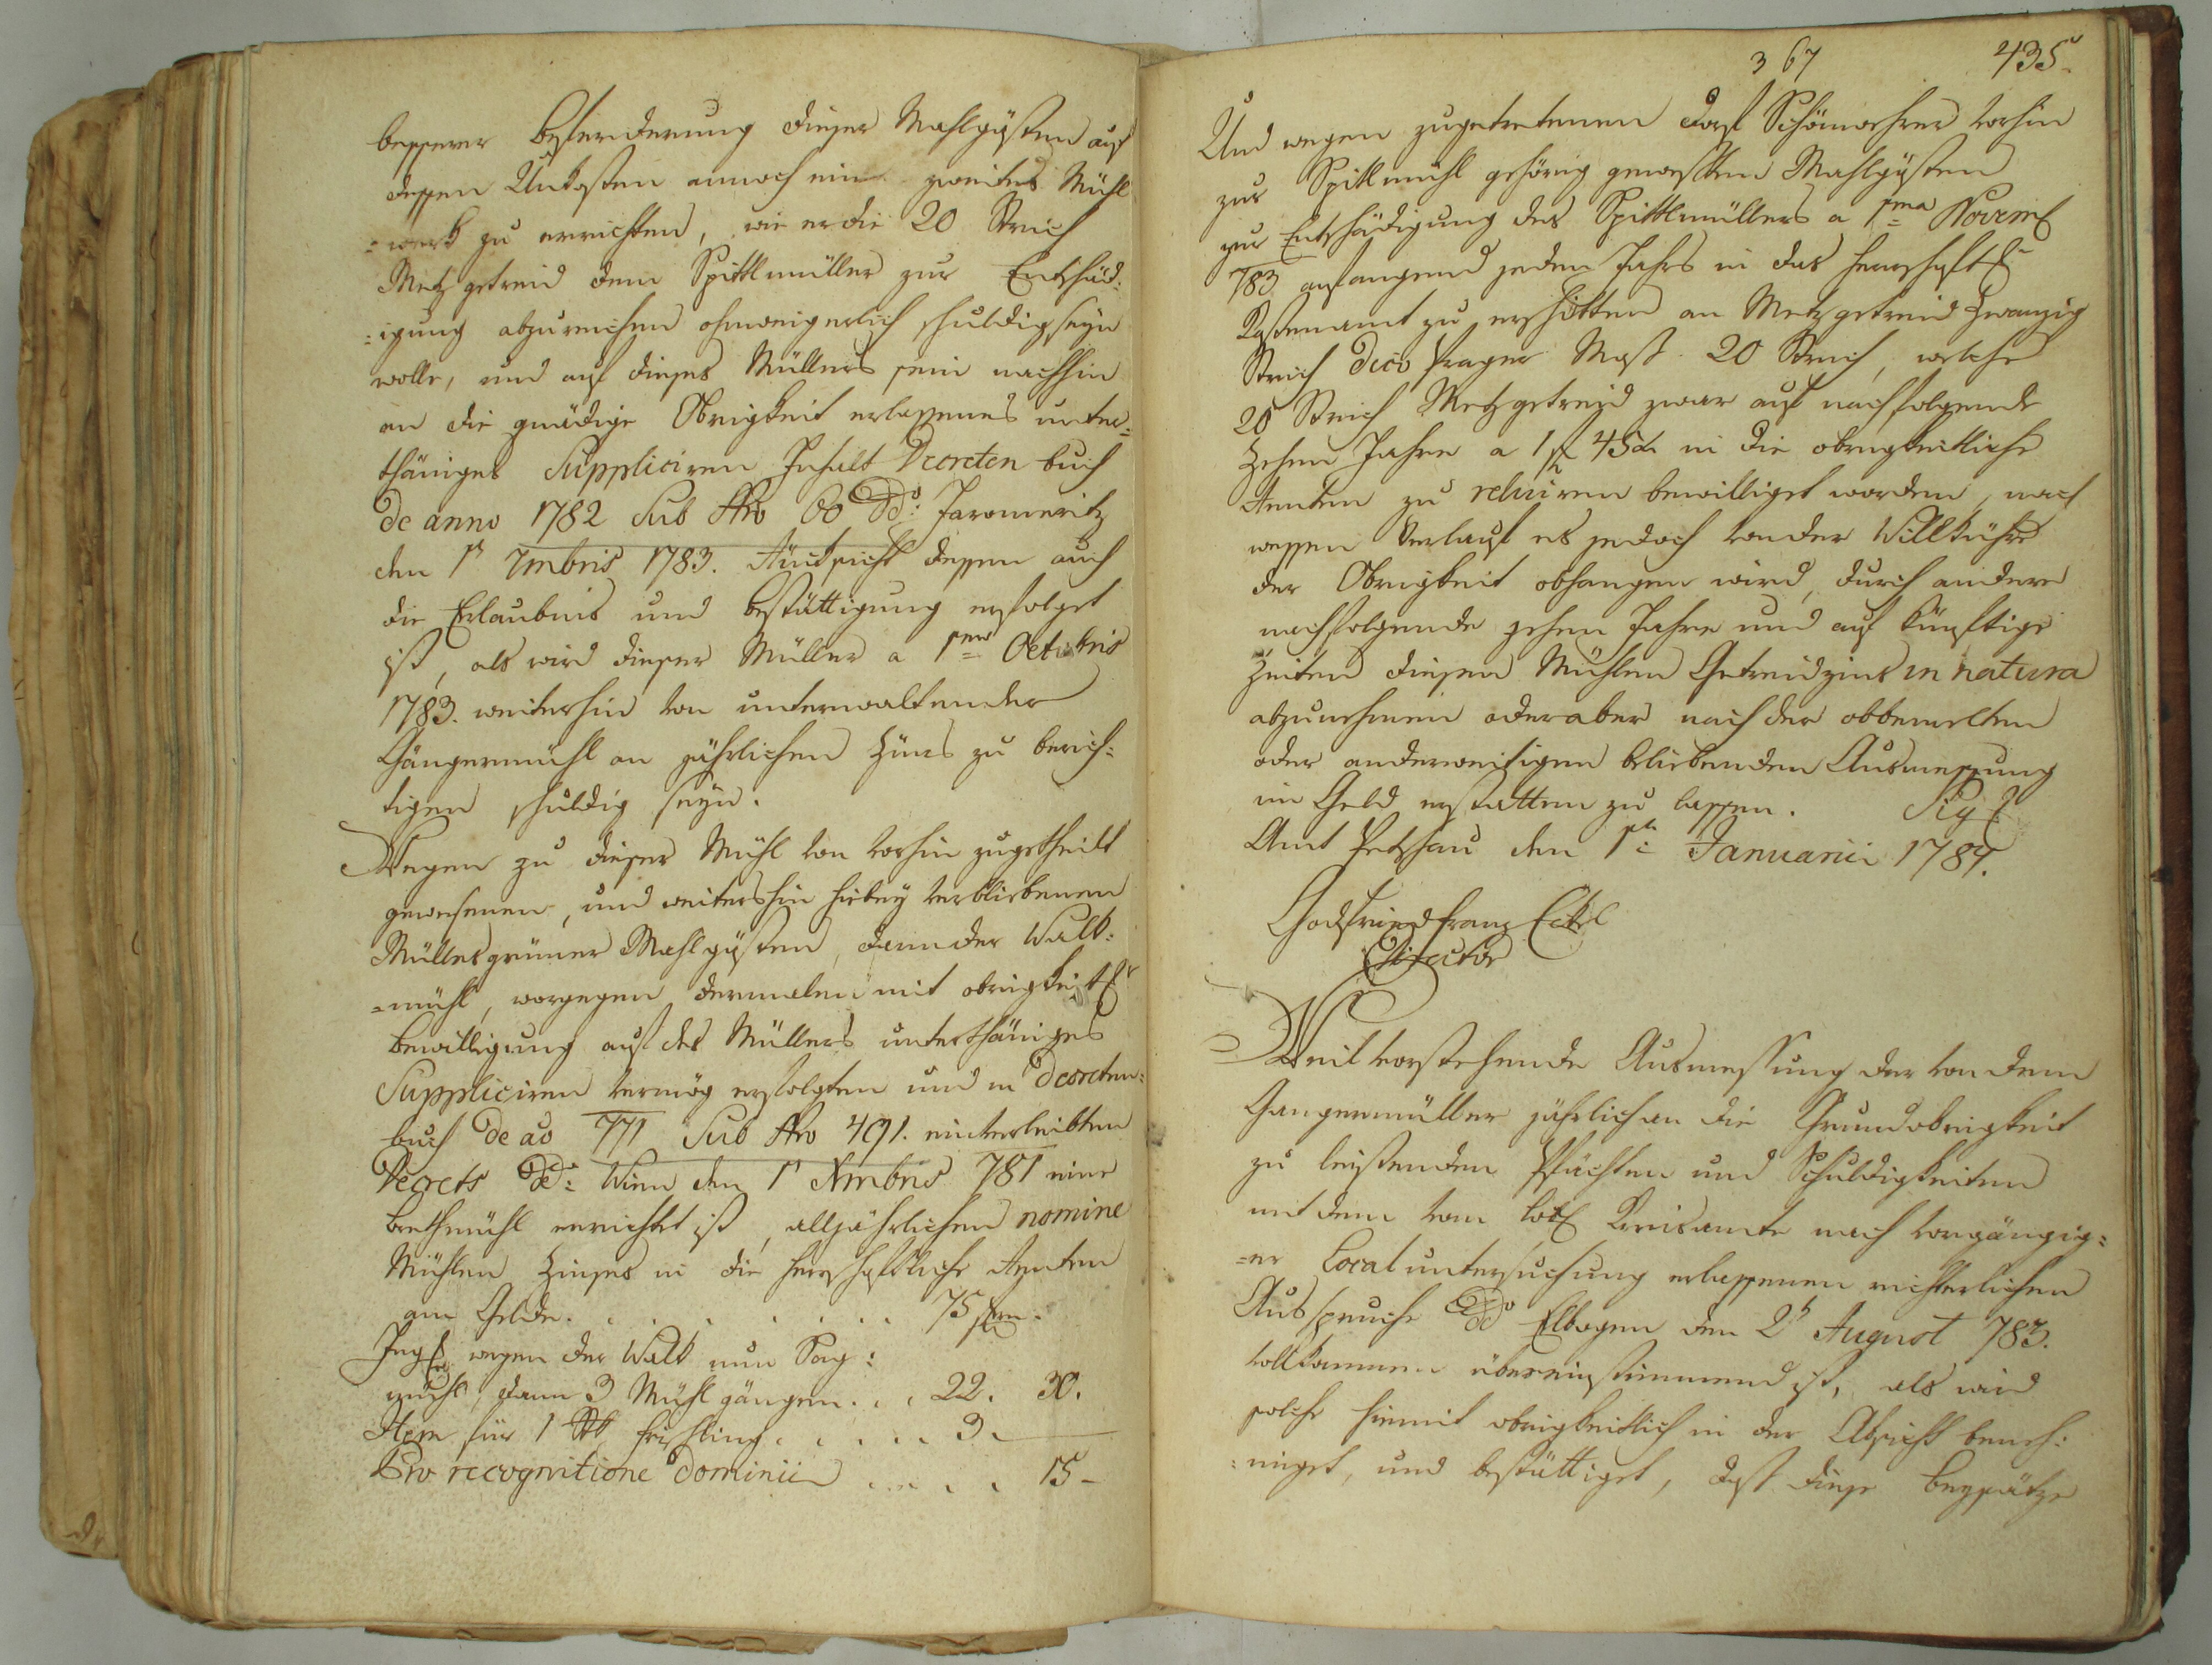 besserer Besfenderung dieser Mahlgästen auf
dessen Unkosten annoch ein zweites Mühl
=werk zu errichten, wie er die 20 Strich
Metzgetreid dem Spittlmüller zur Entschäd:
=igung abzureichen ohnweigerlich schuldig seyn
wolle, und auf dieses Müllers sein nachhin
an die gnädige Obrigkeit erlassenes unter=
thäniges Suppliciren Inhalt Decreten buch
de anno 1782 Sub Nro 60 Ddo: Jaromeritz
den 1t 7mbris 1783. Rücksicht dessen auch
die Erlaubnis und bestättigung erfolget
ist, als wird dieser Müller a 1ma Octobris
1783. weiterhin von unterwaltender
Gängermühl an jährlichen Züns zu berich=
tigen schuldig seyn.
Wegen zu dieser Mühl von vorhin zugetheilt
gewesenen, und weitershin hiebey verbliebenen
Müllesgrüner Mahlgästen, dann der Walk=
=mühl, worgegen dermalen mit obrigkeitl
bewilligung auf des Müllers unterthäniges
Suppliciren vermög erfolgten und in Decreten=
buch de ao 771 Sub Nro 491. einverleibten
Decrets Ddo: Wien den 1t Xmbris 781 eine
brethmühl errichtet ist, alljährlichen nomine
Mühlen Zinses in die herrschaftliche Renten
am Gelde. . . . . . . . 75
wegen der Walk nun Sag=
mühl, dann 3 Mühlgängen . . . 22. 30.
Item für 1 Stk frischling . . . . . 3.
Pro recognitione Dominii . . . . . 15 -
3 67 435.
Und wegen zugetretenen Dorf Schönwehrer vorhin
zur Spittlmühl gehörig gewesten Mahlgästen
zur Entschädigung des Spittlmüllers a 1ma Novemb
783 anfangend jeden Jahrs in das herrschaftl
Kastenamt zu erschütten an Metzgetreid Zwanzig
Strich Dico Prager Maß 20 Strich, welche
20 Strich Metzgetreid zwar auf nachfolgende
Zehen Jahre a 1 f 45 x in die obrigkeitliche
Renten zu reluiren bewilliget worden, nach
wessen Verlauf es jedoch von der Willkühr
der Obrigkeit abhangen wird, durch andere
nachfolgende zehen Jahre und auf künftige
Zeiten diesen Mühlen Getreidzins in natura
abzunehmen oder aber nach der obbemelten
oder anderweitigen beliebenden Ausmessung
im Geld erstatten zu lassen. Sigl
Amt Petschau den 1te Januarii 1784.
Godfried Franz Eckel
Director
Weil vorstehende Ausmessung der von dem
Gangermüller jährlich an die Grundobrigkeit
zu leistenden Pflichten und Schuldigkeiten
mit dem vom löbl Kreisamte nach vorgängig=
=er Local untersuchung erlassenen richterlichen
Ausspruche Ddo Elbogen den 2t August 783.
vollkommen übereinstimmend ist, als wird
solche hiemit obrigkeitlich in der Absicht beneh=
=miget, und bestättiget, daß diese besätze